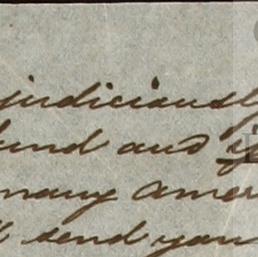 judiciously
fund and
many Amer
send you